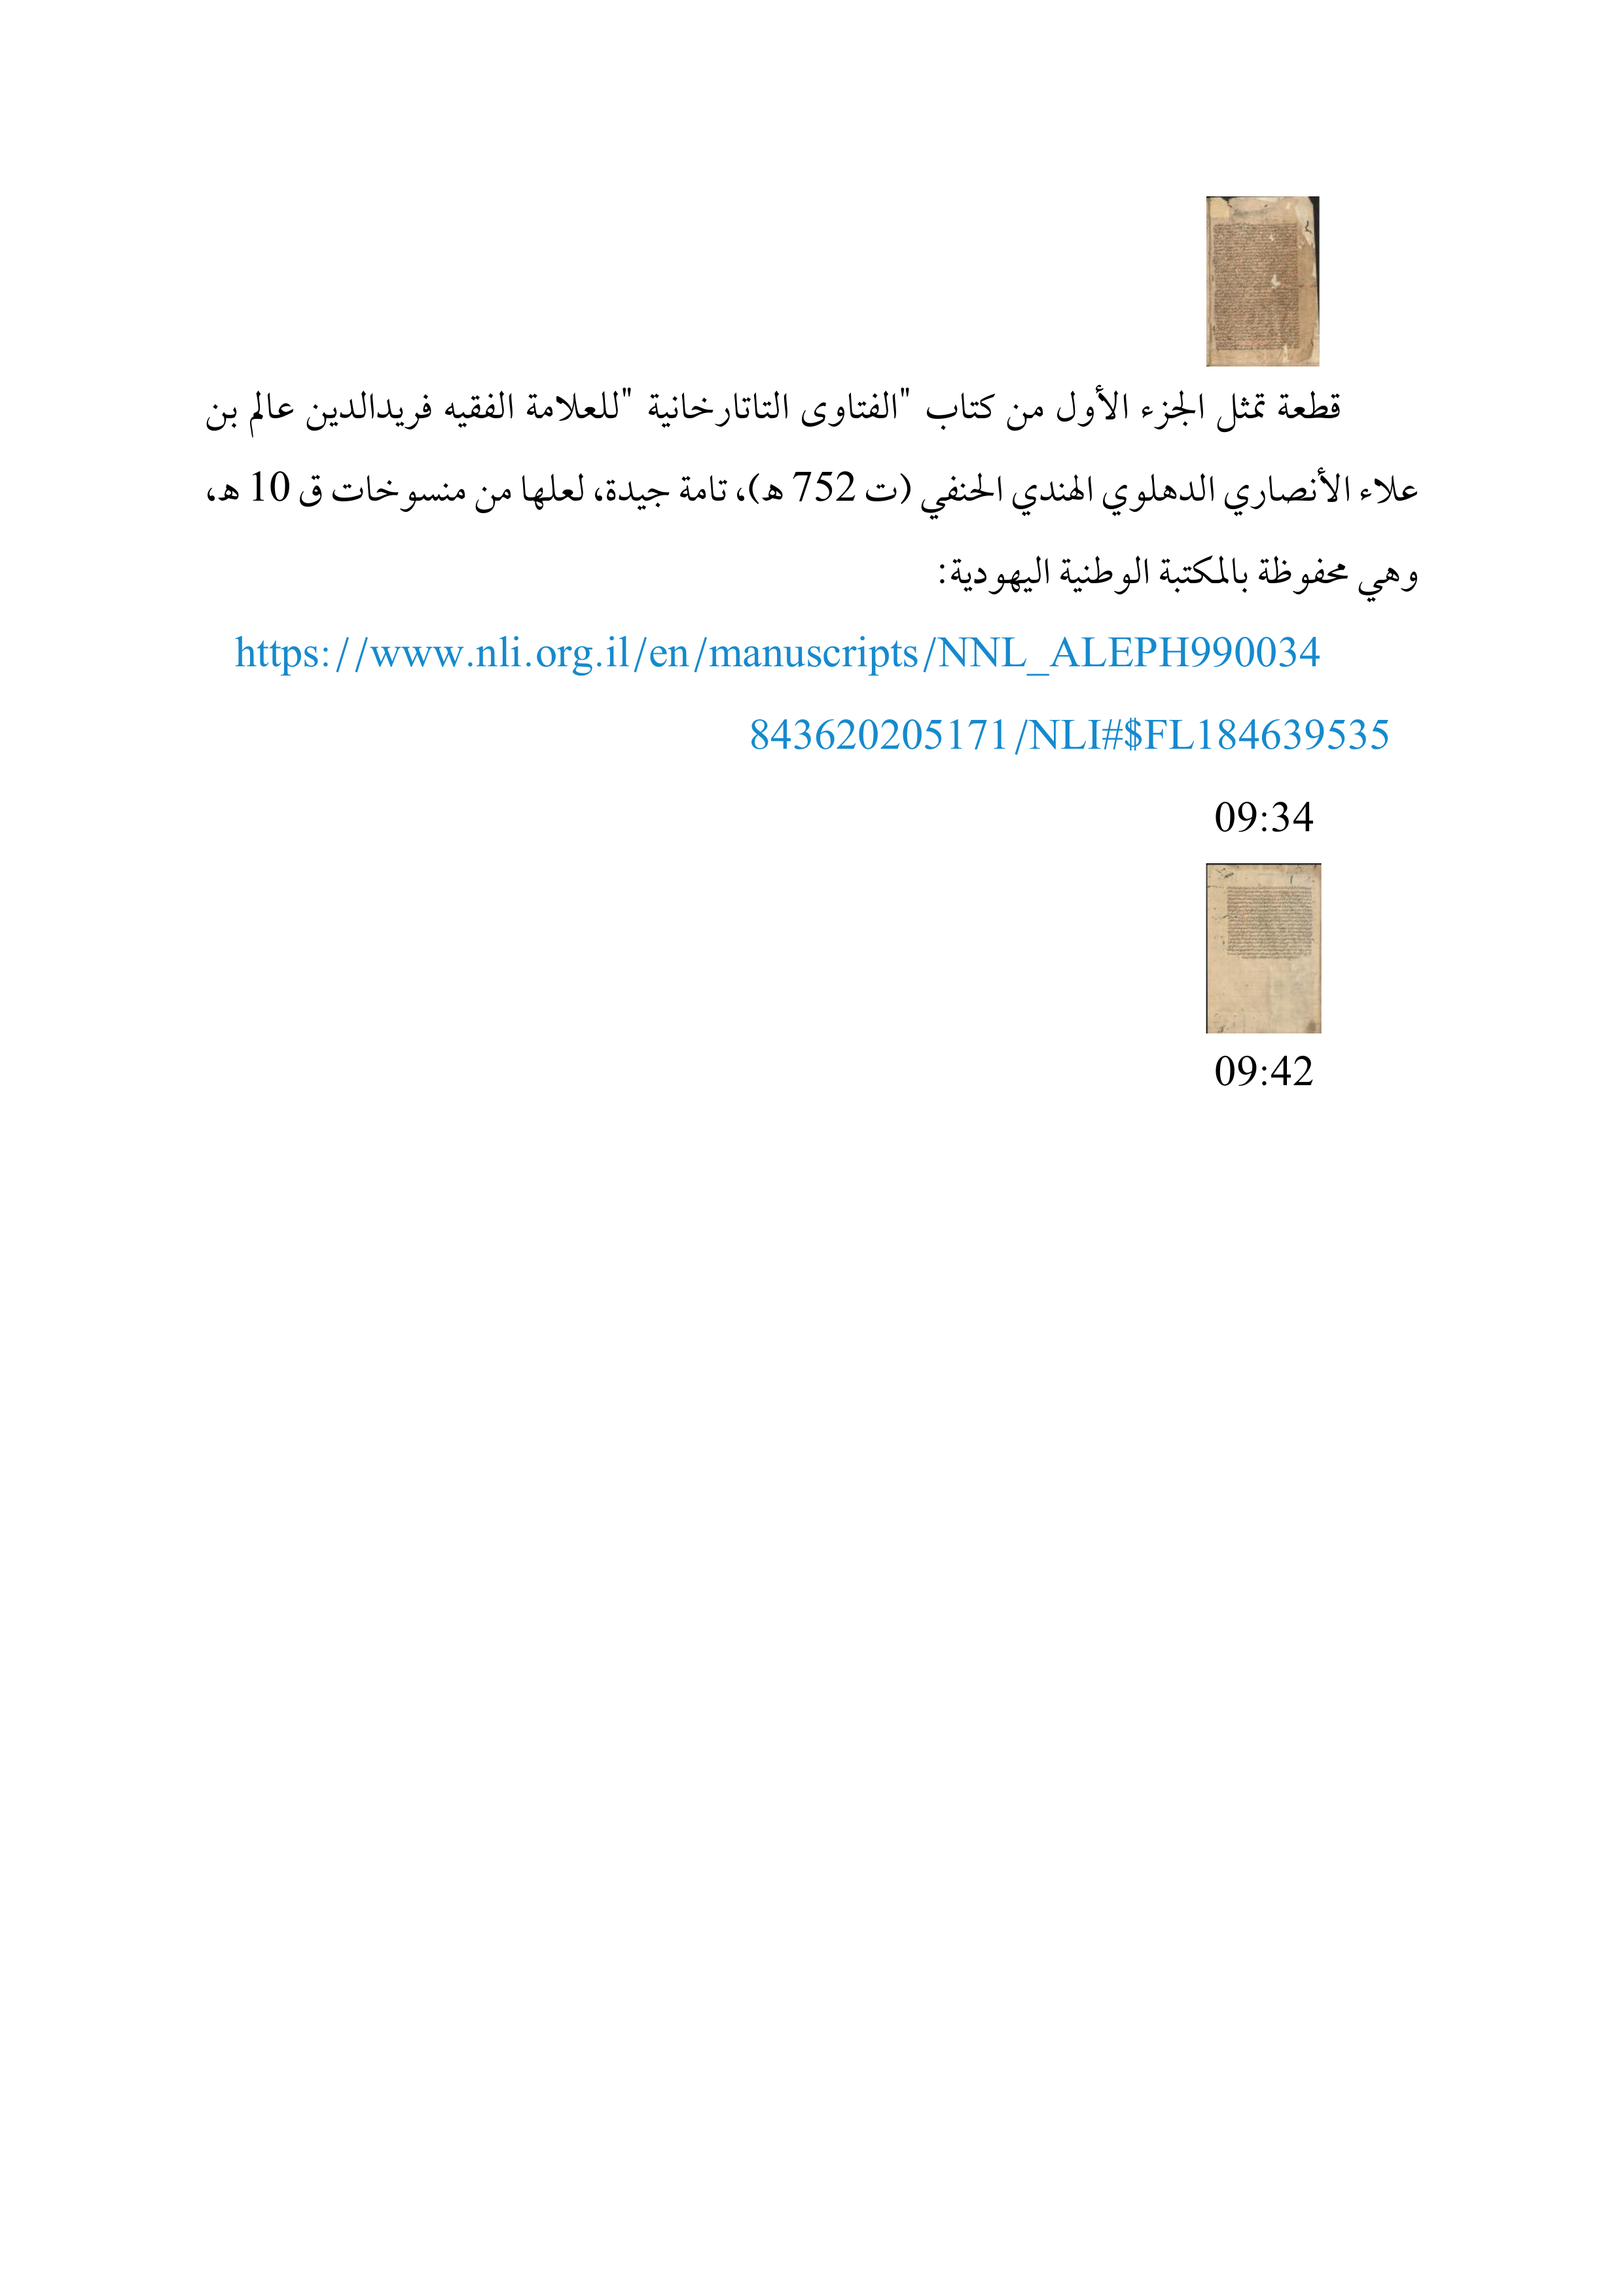 قطعة تمثل الجزء الأول من كتاب "الفتاوى التاتارخانية "للعلامة الفقيه فريدالدين عالم بن
علاء الأنصاري الدهلوي الهندي الحنفي (ت 752 ه)، تامة جيدة، لعلها من منسوخات ق 10 ه،
وهي محفوظة بالمكتبة الوطنية اليهودية:
https://www.nli.org.il/en/manuscripts/NNL_ALEPH990034
843620205171/NLI#$FL184639535
09:34
09:42